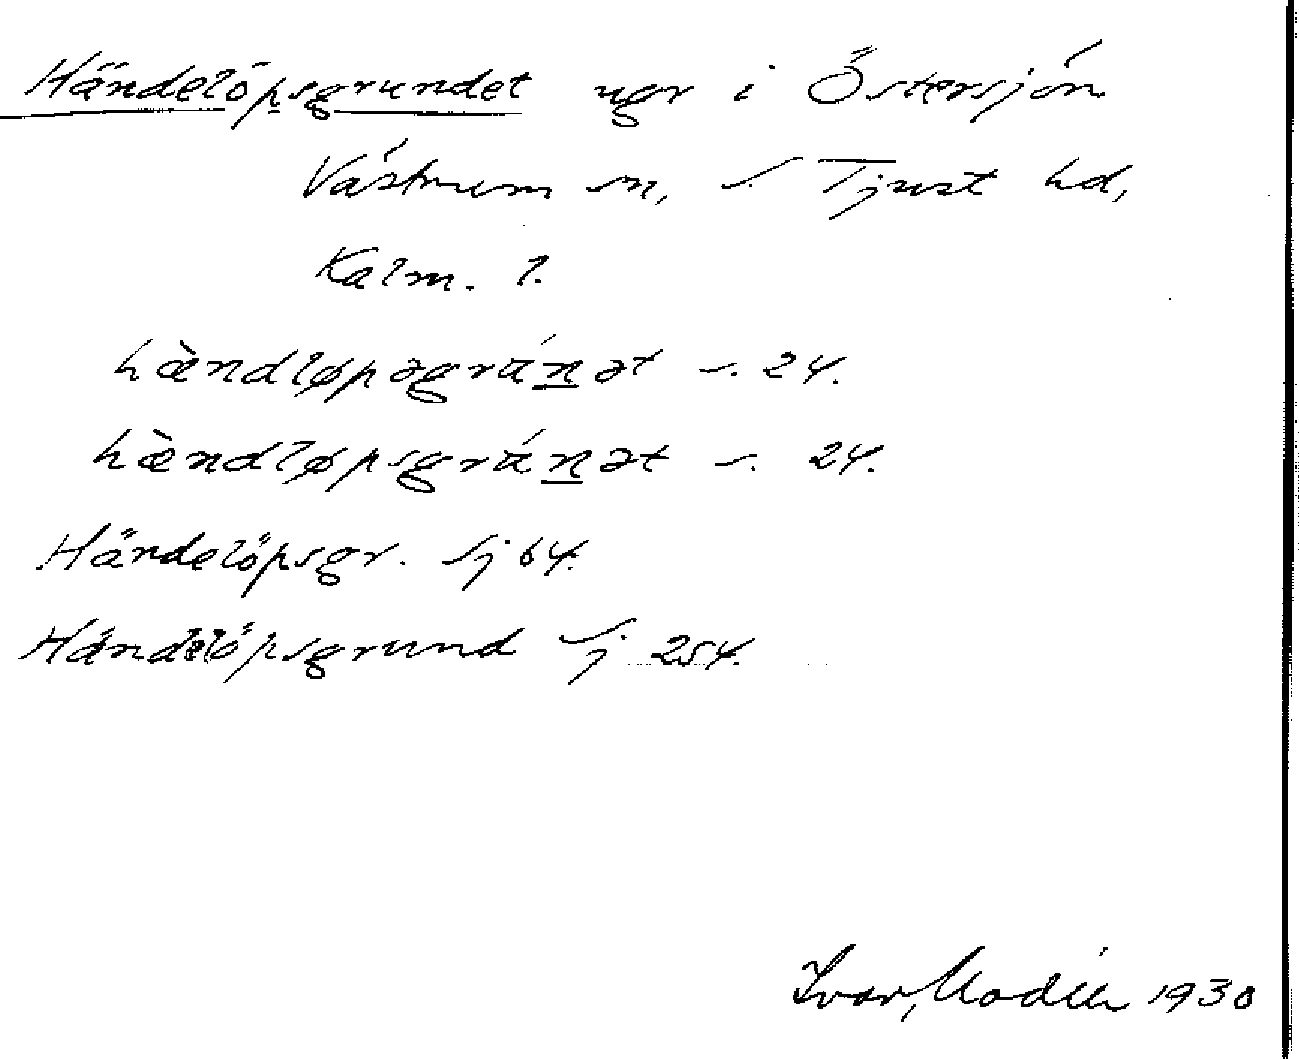 Händelöpsgrundet ugr i Östersjön
Västrum sn, S. Tjust hd,
Kalm. l.
hæ̀ndløpəgrúnət s. 24.
hæ̀ndløpsgrúnət s. 24.
Händelöpsgr. Sj 64.
Händelöpsgrund Sj 254.
Ivar Modéer 1930